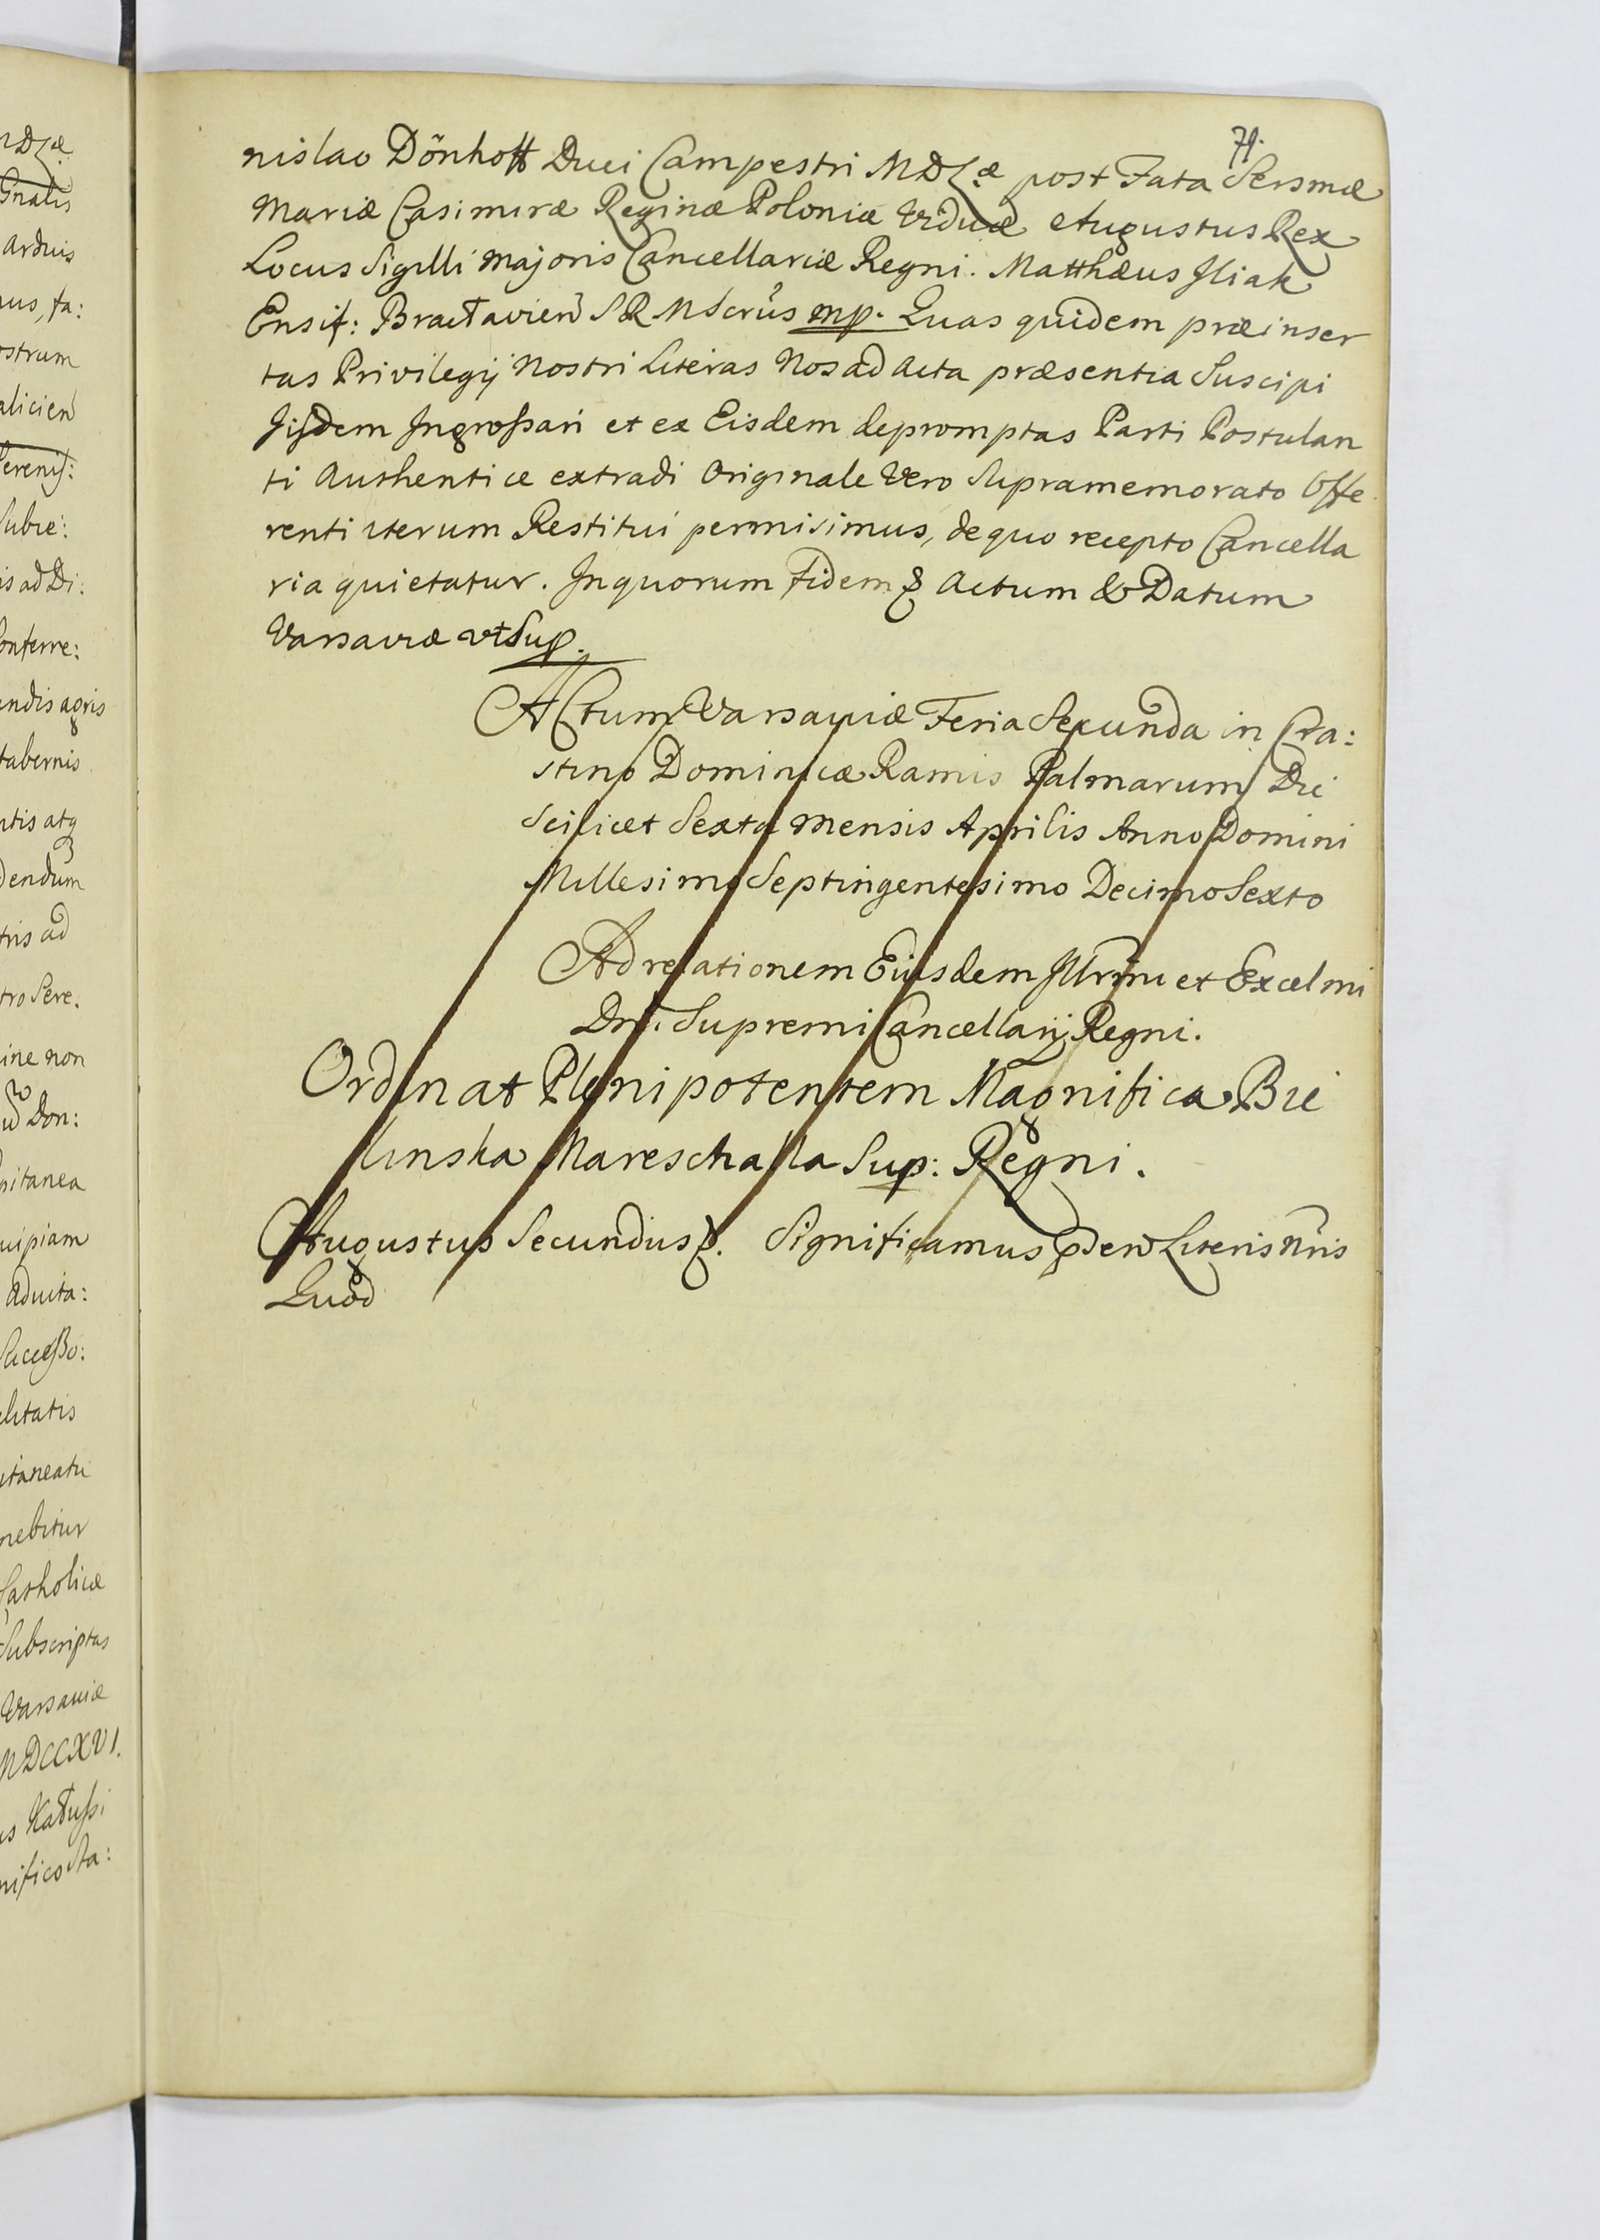 71.
nislao Dönhoff Duci Campestri MDLæ post Fata Sersmæ
Mariæ Casimiræ Reginæ Poloniæ Viduæ Augustus Rex
Locus Sigilli Majoris Cancellariæ Regni. Matthæus Iliak
Ensif: Bractavien S R M Scrius mp. Quas quidem præinser
tas Privilegij Nostri Literas Nos ad Acta præsentia Suscipi
Iisdem Ingrossari et ex Eisdem depromptas Parti Postulan
ti Authentice extradi Originale Vero Supramemorato Offe
renti iterum Restitui permisimus, de quo recepto Cancella
ria quietatur. In quorum Fidem & Actum & Datum
Varsaviæ ut Sup.
Actum Varsaviæ Feria Secunda in Cra:
stino Dominicæ Ramis Palmarum Die
Scilicet Sexta Mensis Aprilis Anno Domini
Millesimo Septingentesimo Decimo Sexto
Ad relationem Eiusdem Illrmi et Excelmi
Dni. Supremi Cancellarij Regni.
Ordinat Plenipotentem Magnifica Bie
linska Mareschalla Sup: Regni.
Augustus Secundus &. Significamus Literis Nris
Quod
MDLæ
Gnalis
arduis
us, fa:
ostrum
alicien
Sereniss:
Subie:
is ad Di:
Conferre:
endis agris
tabernis
ntis atq
dendum
tris ad
tro Sere.
ine non
Don:
pitanea
uipiam
aduita:
Successo:
elitatis
itaneatu
nebitur
Catholicæ
Subscriptas
Varsaviæ
MDCCXVI.
nifico Sta: